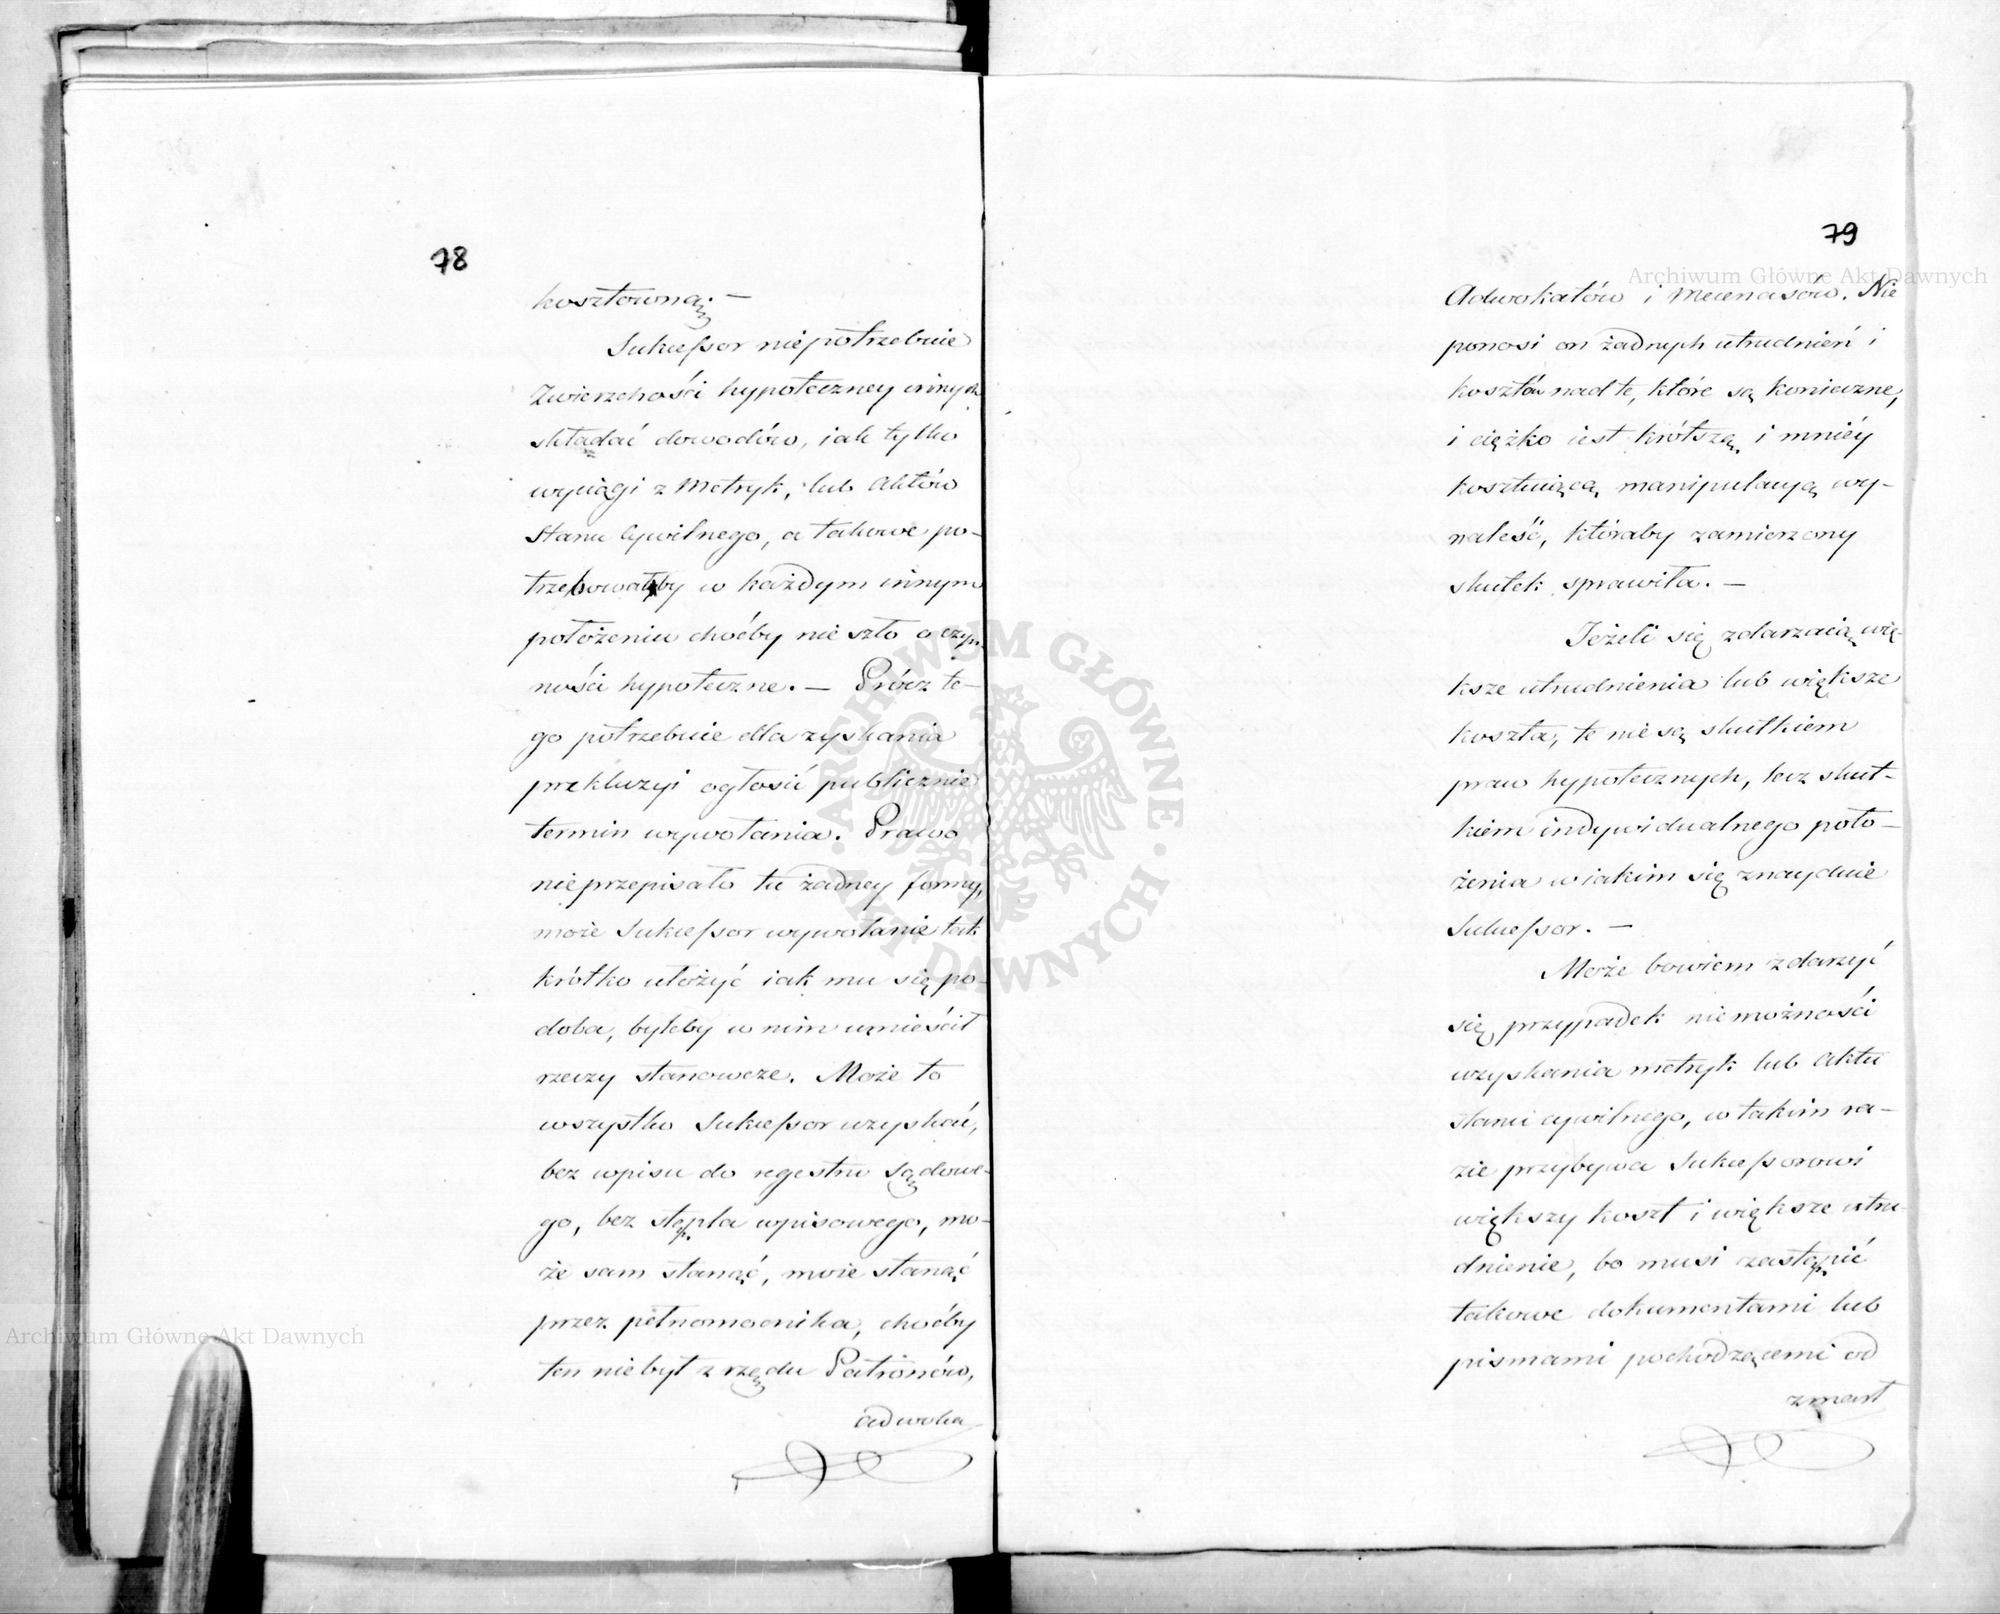 78
kosztowną. —
Sukcessor niepotrzebuie
Zwierzchości hypoteczney innych
składać dowodów, iak tylko
wyciągi z Metryk, lub Aktów
Stanu Cywilnego, a takowe po-
trzebowałby w każdym innym
położeniu choćby nie szło o czyn-
ności hypoteczne. — Prócz te-
go potrzebuie dla zyskania
prekluzyi ogłosić publicznie
termin wywołania. Prawo
nieprzepisało tu żadney formy,
może Sukcessor wywołanie tak
krótko ułożyć iak mu się po-
doba, byleby w nim umieścił
rzeczy stanowcze. Może to
wszystko Sukcessor uzyskać,
bez wpisu do regestru sądowe-
go, bez stępla wpisowego, mo-
że sam stanąć, może stanąć
przez pełnomocnika, choćby
ten niebył z rzędu Patronów,
adwoka
79
Adwokatów i Mecenasów. Nie
ponosi on żadnych utrudnień i
kosztów nad te, które są konieczne,
i ciężko iest krótszą i mniéy
kosztuiącą manipulacyą wy-
naleść, któraby zamierzony
skutek sprawiła. —
Jeżeli się zdarzaią wię-
ksze utrudnienia lub większe
koszta, te nie są skutkiem
praw hypotecznych, lecz skut-
kiem indywidualnego poło-
żenia w iakim się znayduie
Sukcessor. —
Może bowiem zdarzyć
się przypadek niemożności
uzyskania metryk lub Aktu
stanu cywilnego, w takim ra-
zie przybywa Sukcessorowi
większy koszt i większe utru-
dnienie, bo musi zastąpić
takowe dokumentami lub
pismami pochodzącemi od
zmarł
Archiwum Główne Akt Dawnych
Archiwum Główne Akt Dawnych
ARCHIWUM GŁÓWNE · AKT DAWNYCH ·